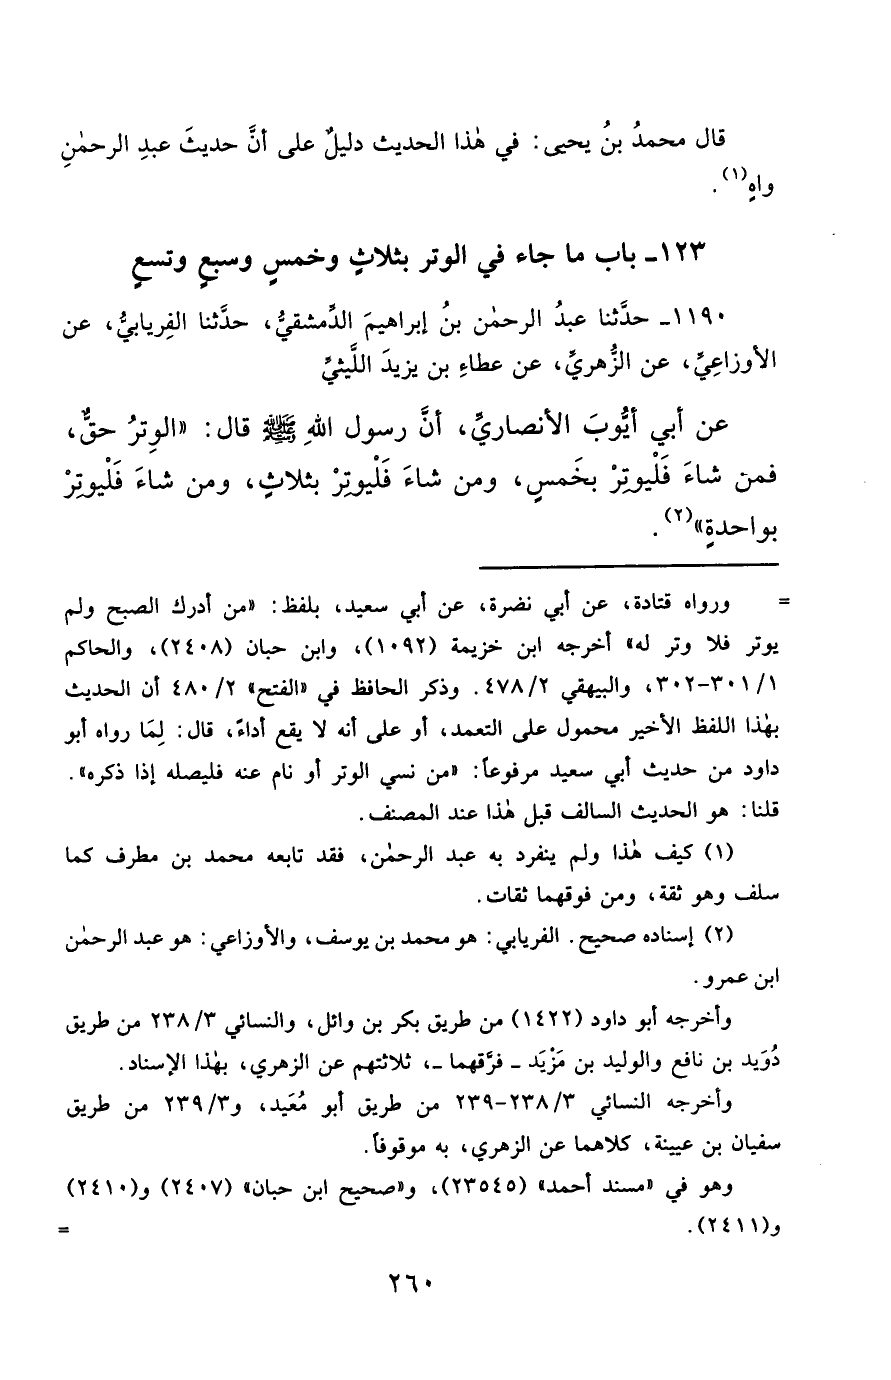 قال محمدُ بنُ يحيى: في هٰذا الحديث دليلٌ على أنَّ حديثَ عبدِ الرحمٰنِ
واهٍ(١).
١٢٣ـ باب ما جاء في الوتر بثلاثٍ وخمسٍ وسبعٍ وتسعٍ
١١٩٠ـ حدَّثنا عبدُ الرحمٰن بنُ إبراهيمَ الدِّمشقيُّ، حدَّثنا الفِريابيُّ، عن
الأوزاعِيِّ، عن الزُّهريِّ، عن عطاءِ بن يزيدَ اللَّيثيِّ
عن أبي أيُّوبَ الأنصاريِّ، أنَّ رسول اللهِ ﷺ قال: «الوِترُ حقٌّ،
فمن شاءَ فَلْيوتِرْ بخَمسٍ، ومن شاءَ فَلْيوتِرْ بثلاثٍ، ومن شاءَ فَلْيوتِرْ
بواحدةٍ»(٢).
= ورواه قتادة، عن أبي نضرة، عن أبي سعيد، بلفظ: «من أدرك الصبح ولم
يوتر فلا وتر له» أخرجه ابن خزيمة (١٠٩٢)، وابن حبان (٢٤٠٨)، والحاكم
٣٠١/١-٣٠٢، والبيهقي ٤٧٨/٢. وذكر الحافظ في «الفتح» ٤٨٠/٢ أن الحديث
بهٰذا اللفظ الأخير محمول على التعمد، أو على أنه لا يقع أداءً، قال: لِمَا رواه أبو
داود من حديث أبي سعيد مرفوعاً: «من نسي الوتر أو نام عنه فليصله إذا ذكره».
قلنا: هو الحديث السالف قبل هٰذا عند المصنف.
(١) كيف هٰذا ولم ينفرد به عبد الرحمٰن، فقد تابعه محمد بن مطرف كما
سلف وهو ثقة، ومن فوقهما ثقات.
(٢) إسناده صحيح. الفريابي: هو محمد بن يوسف، والأوزاعي: هو عبد الرحمٰن
ابن عمرو.
وأخرجه أبو داود (١٤٢٢) من طريق بكر بن وائل، والنسائي ٢٣٨/٣ من طريق
دُوَيد بن نافع والوليد بن مَزْيَد ـ فرَّقهما ـ، ثلاثتهم عن الزهري، بهٰذا الإسناد.
وأخرجه النسائي ٢٣٨/٣-٢٣٩ من طريق أبو مُعَيد، و٢٣٩/٣ من طريق
سفيان بن عيينة، كلاهما عن الزهري، به موقوفاً.
وهو في «مسند أحمد» (٢٣٥٤٥)، و«صحيح ابن حبان» (٢٤٠٧) و(٢٤١٠)
و(٢٤١١). =
٢٦٠